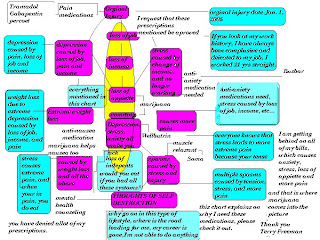 Tramadol
Gabapentin
percoet
Pain
medications
Orginal
injury
I request that these
prescriptions
mentioned be aproved
orginal injury date Jan. 1,
2008
loss of job
If you look at my work
history, I have always
been comfirmed and
devoted to my job, I
worked 11 yrs straight
depression
caused by
pain, loss of
job and
income
depression
caused by
loss of job,
pain and
income
loss of
income
stress
caused by
changes of
income, and
no longer
working
anti-
anxiety
medication
needed
Buspar
Anti-anxiety
medications used,
stress caused by loss
of job, income, etc...
everything
mentioned in
this chart
loss of
appetite
marijuana
weight loss
due to
extreme
depression
caused by loss
of job,
income, and
pain
Extreme weight loss
vomiting
causes more
pain
anti-nausea
medication
marijuana helps
nausea too
Depression,
stress,
Wellbutrin
muscle
relaxant
Soma
everyone knows that
stress leads to more
extreme pain
because your tense
I am getting
behind on all
of my bills,
which causes
anxiety,
stress, loss of
appetite and
more pain
and that is
where
marijuana
comes into the
picture
stress
causes
extreme
pain, and
when your
in pain,
you do not
eat
caused by
weight loss
and all the
above
loss of
intrests
would you eat
if you had all
these systoms?
spasms
caused by
stress and
injury
multiple spasms
caused by
tension, stress,
and more pain
THOUGHTS OF SELF
DESTRATION
mental
health
counseling
why go on in this type of
lifestyle, where is the road
leading for me, my career is
gone, I'm not able to do anything
this chart explains on
why I need these
medications, please
check it out.
Thank you
Terry Freeman
you have denied allot of my
prescriptions.